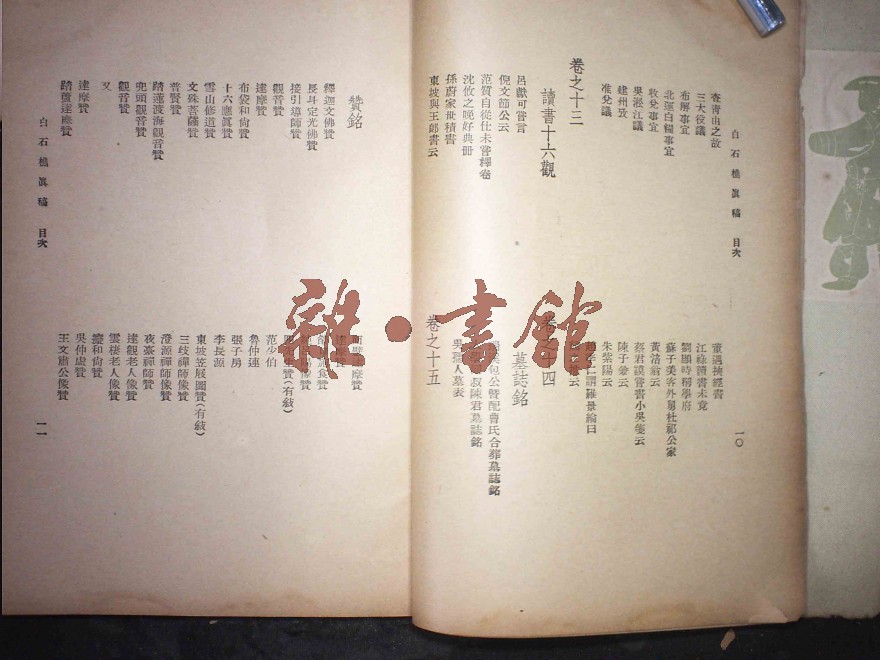 白石樵眞稿 目次
一〇
查青山之故
三大役議
布解事宜
北運白糧事宜
牧兌事宜
吳淞江議
建州攷
准兌議
卷之十三
讀書十六觀
呂獻可嘗言
倪文節公云
范質自從仕未嘗釋卷
沈攸之晚好典冊
孫蔚家世積書
東坡與王郎書云
董遇挾經書
江祿讀書未竟
劉顯時稱學府
蘇子美客外舅杜祁公家
黃涪翁云
蔡君謨嘗書小吳箋云
陳子兼云
朱紫陽云
趙季仁謂羅景綸曰
卷之十四
墓誌銘
包公暨配曹氏合葬墓誌銘
叔陳君墓誌銘
吳瑞人墓表
卷之十五
贊銘
釋迦文佛贊
長斗定光佛贊
接引導師贊
觀音贊
達摩贊
布袋和尙贊
十六應眞贊
雪山修道贊
文殊菩薩贊
普賢贊
踏蓮渡海觀音贊
兜頭觀音贊
觀音贊
又
達摩贊
踏蘆達摩贊
面壁達摩贊
達摩贊
贊(有敍)
范少伯
魯仲連
張子房
李長源
東坡笠屐圖贊(有敍)
三歧禪師像贊
澄源禪師像贊
夜臺禪師贊
達觀老人像贊
雲棲老人像贊
蠻和尙贊
吳仲虛贊
王文肅公像贊
白石樵眞稿 目次
一一
雜·書館